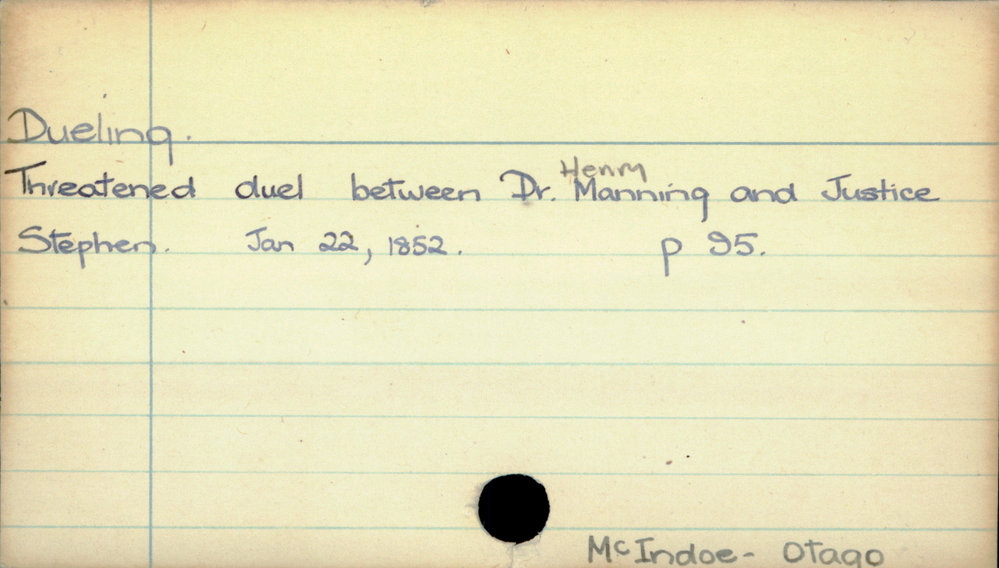 Dueling.
Threatened duel between Dr. Henry Manning and Justice
Stephen. Jan 22, 1852. p 95.
McIndoe - Otago